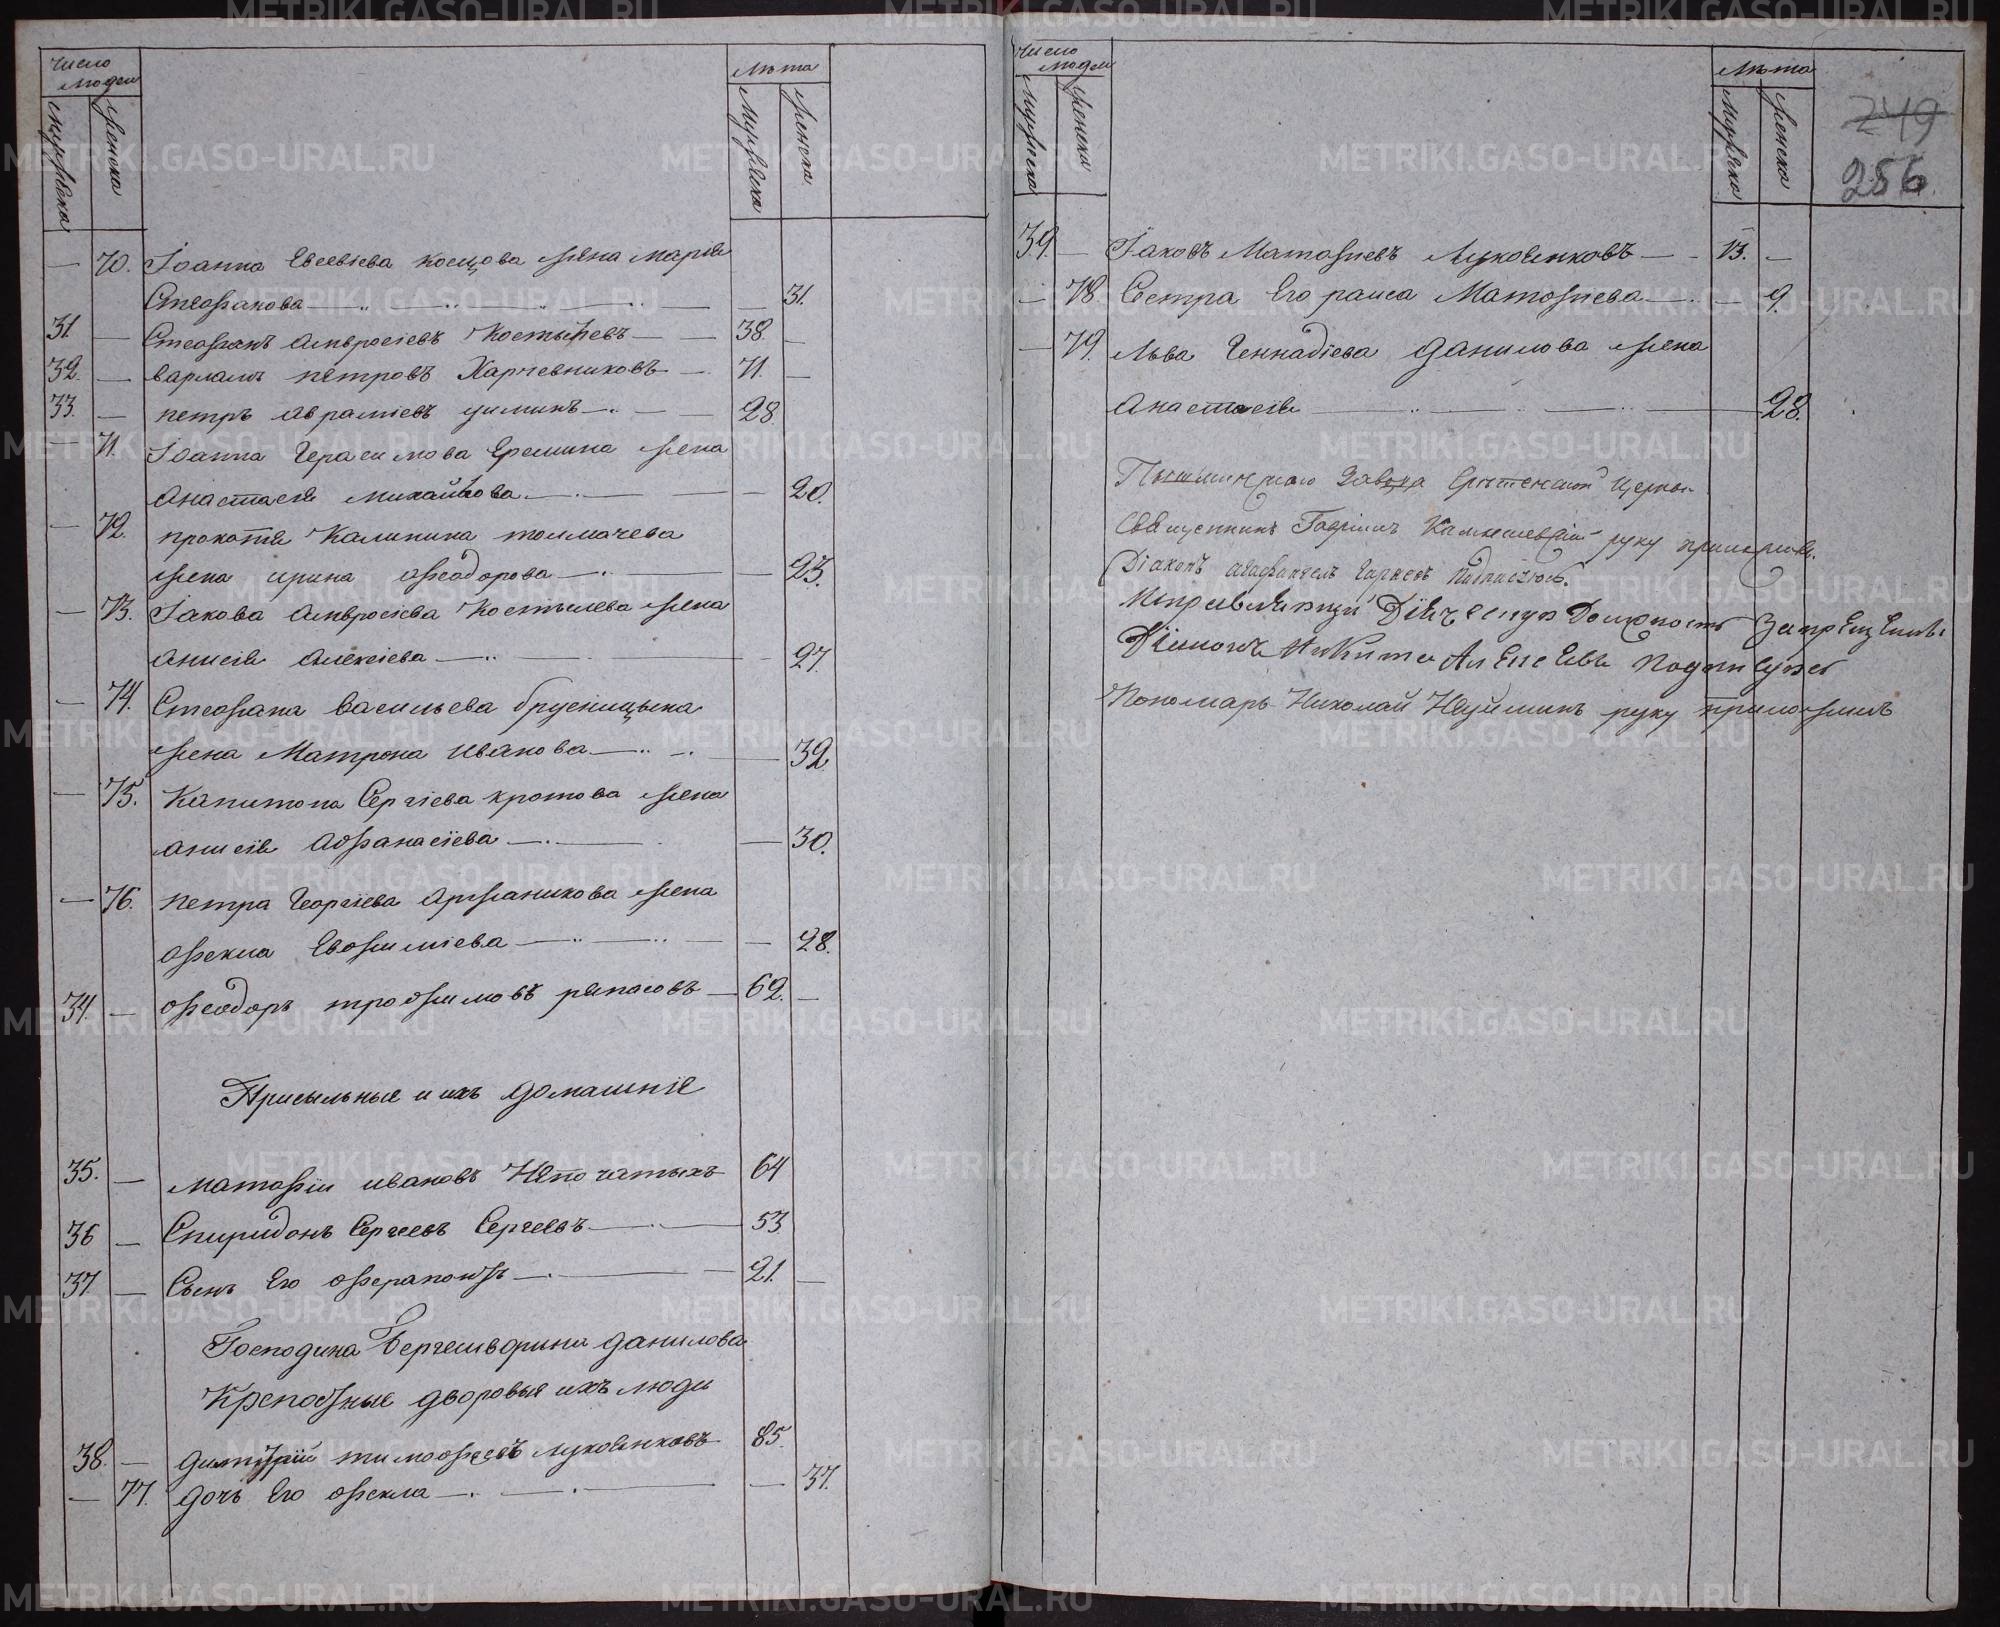 число людей
мужеска
женска
Лѣта
Мужеска
Женска
— 70. Іоанна Евсевіева Косцова жена марія
Стефанова — 31.
31. — Стефанъ Амвросіевъ Костылевъ — 38. —
32. — варламъ петровъ Харчевниковъ — 71. —
33. — петръ авраміевъ зиминъ — 28
— 71. Іоанна Герасимова Еремина жена
Анастасія михайлова — 20.
— 72. прокопія Калинина толмачева
жена ирина феодорова — 23.
— 73. Іакова Амвросіева Костылева жена
анисія Алексіева — 27.
— 74. Стефана Васильева брусницына
жена Матрона иванова — 32.
— 75. Капитона Сергіева кротова жена
анисія Афанасіева — 30.
— 76. петра Георгіева Аржаникова жена
фекла Евфиміева — 28.
34. — феодоръ трофимовъ рѣпасовъ — 62. —
Присыльные и ихъ домашніе
35. — матфій ивановъ Непочатыхъ 64
36 — Спиридонъ Сергеевъ Сергеевъ — 53
37. — Сынъ Его ферапонтъ — 21. —
Господина Бергешворина данилова
Крепостные дворовыя ихъ люди
38. — димітрій тимофеевъ луковниковъ 85.
— 77. дочь Его фекла — 37.
число людей
Мужеска
женска
Лѣта
Мужеска
Женска
249
256
39. — Іаковъ Матфіевъ Луковниковъ — 13. —
— 78. Сестра Его раиса Матфіева — 9.
— 79. Льва Геннадіева данилова жена
Анастасія — 28.
Пышминскаго Завода Срѣтенской Церкви
Священникъ Гавріилъ Камышевскій руку приложилъ.
Діаконъ Подписуюсь.
Исправляющій должность запрещенный
Діаконъ Никита Алексеевъ подписуюсь
Пономарь Николай Наумовъ руку приложилъ